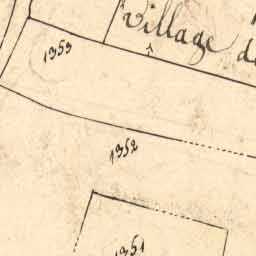 Village
1353
1352
1351